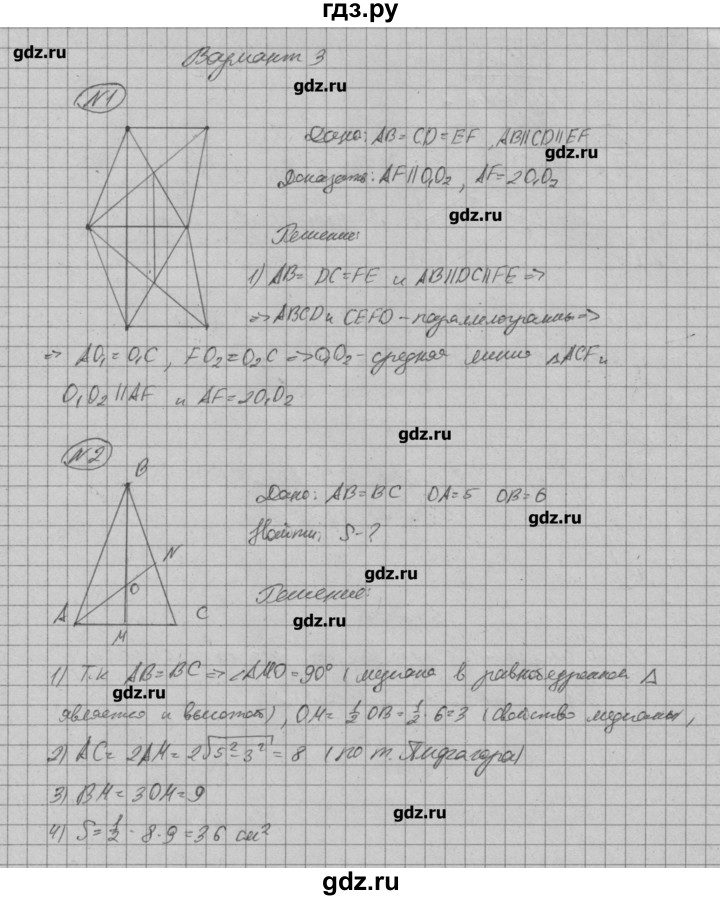 гдз.ру
gdz.ru
Вариант 3
gdz.ru
№1
Дано: AB = CD = EF, AB||CD||EF
gdz.ru
Доказать: AF || O₁O₂, AF = 2O₁O₂
gdz.ru
Решение:
1) AB = DC = FE и AB||DC||FE =>
=> ABCD и CEFD - параллелограммы =>
=> AO₁ = O₁C, FO₂ = O₂C => O₁O₂ - средняя линия ΔACF и
O₁O₂ || AF и AF = 2O₁O₂
gdz.ru
№2
B
Дано: AB = BC OA = 5 OB = 6
gdz.ru
Найти: S - ?
N
gdz.ru
O
Решение:
A
C
gdz.ru
M
1) Т.к AB = BC => ∠AMO = 90° (медиана в равнобедренной Δ
gdz.ru
является и высотой), OM = 1/2 OB = 1/2 · 6 = 3 (свойство медианы)
2) AC = 2AM = 2√5² - 3² = 8 (по т. Пифагора)
3) BM = 3OM = 9
gdz.ru
4) S = 1/2 · 8 · 9 = 36 см²
gdz.ru